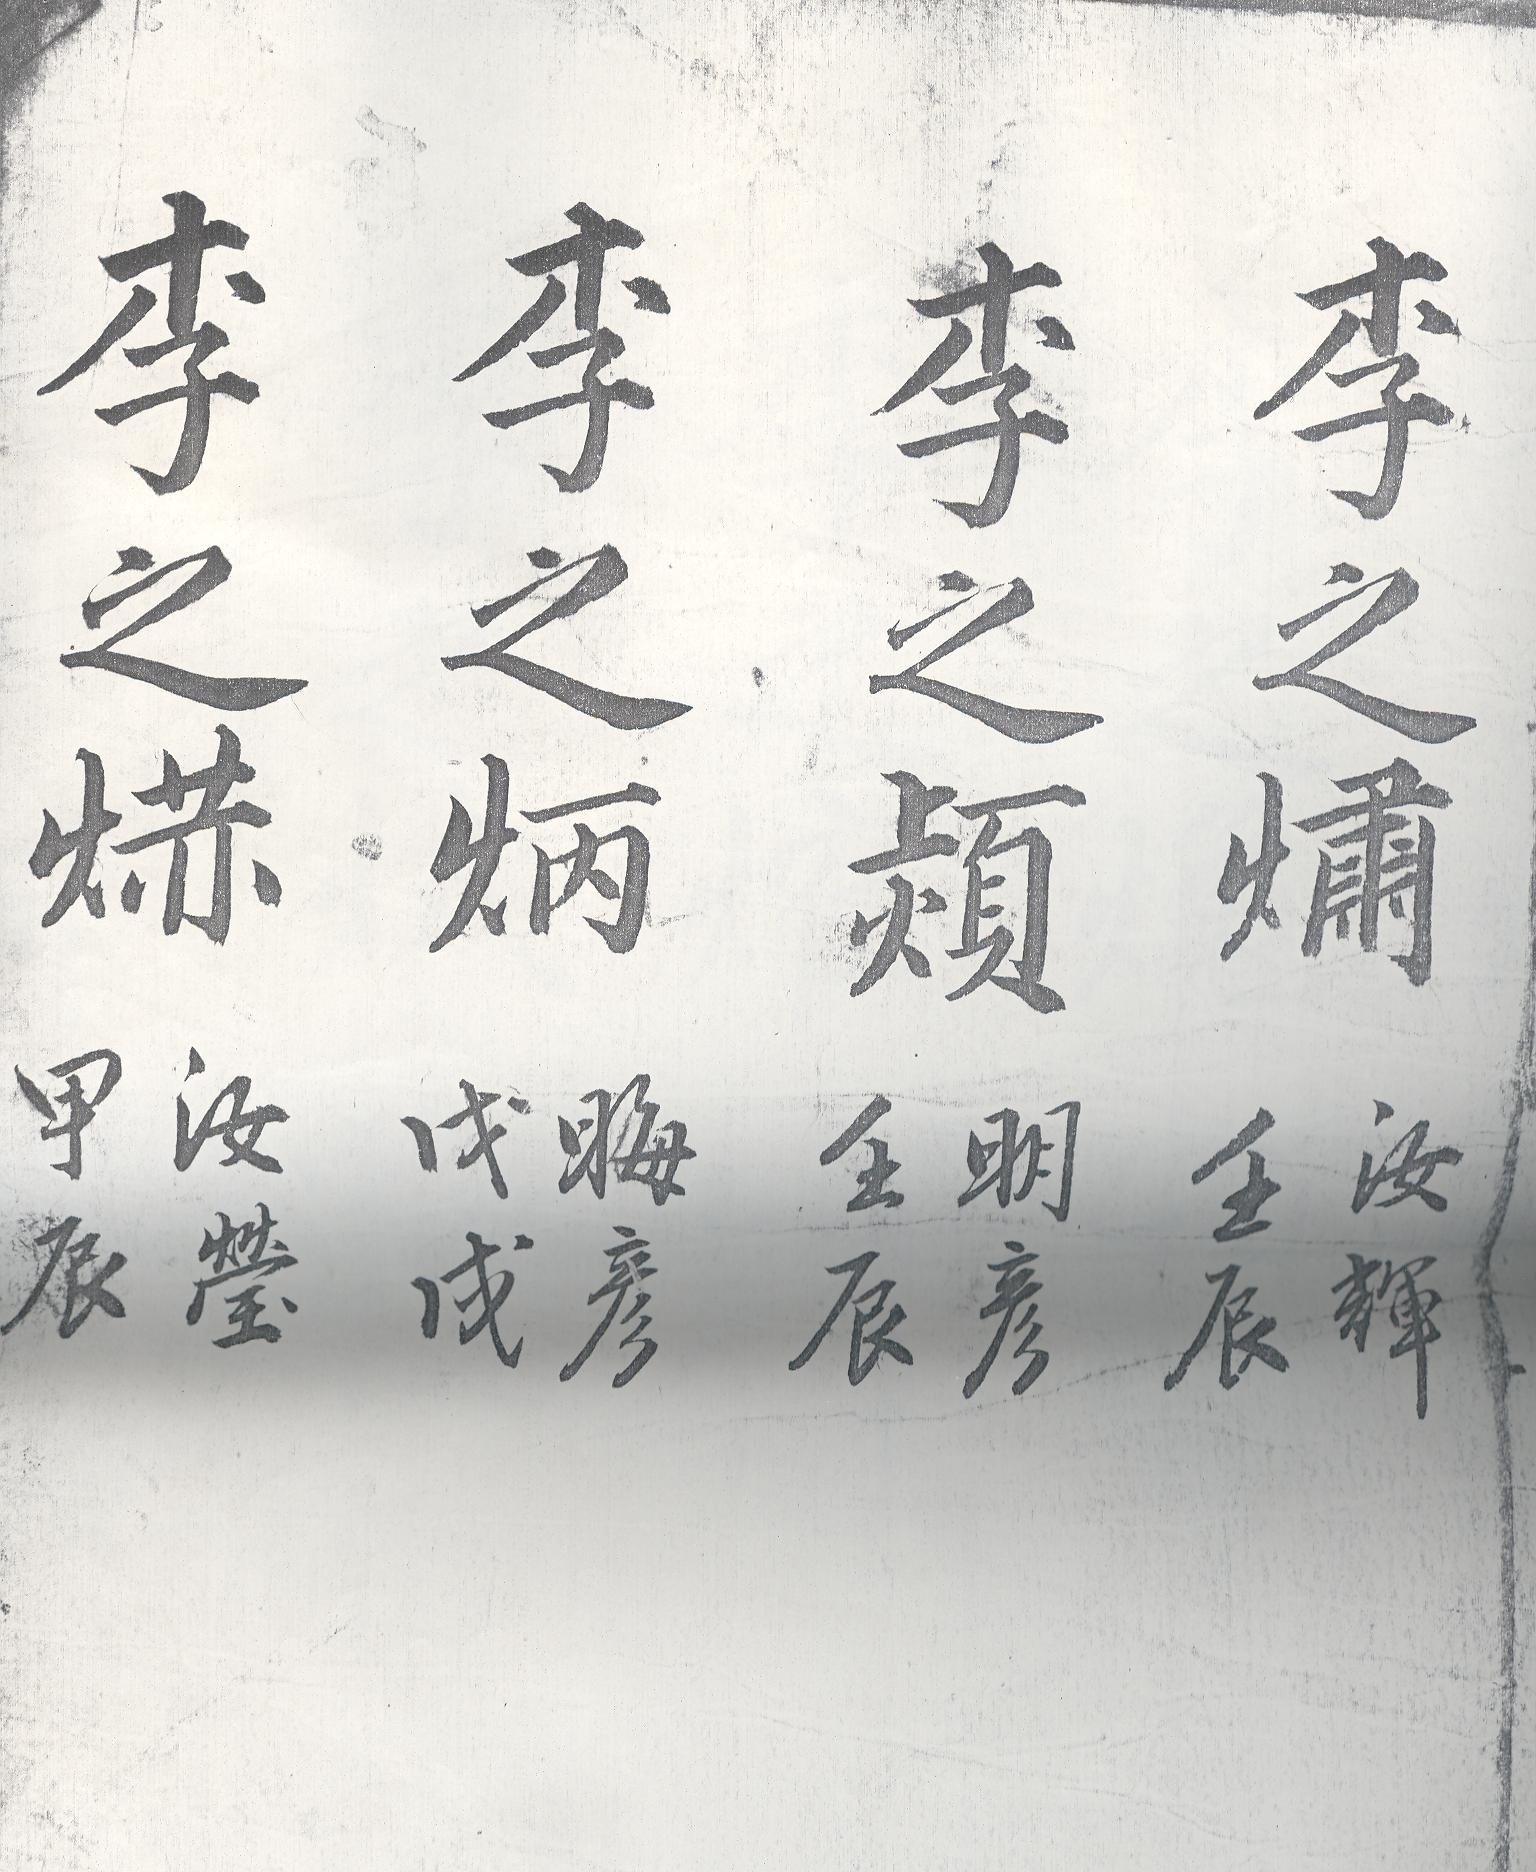 李之熽
汝輝
壬辰
李之熲
明彦
壬辰
李之炳
晦彦
戊戌
李之
汝瑩
甲辰